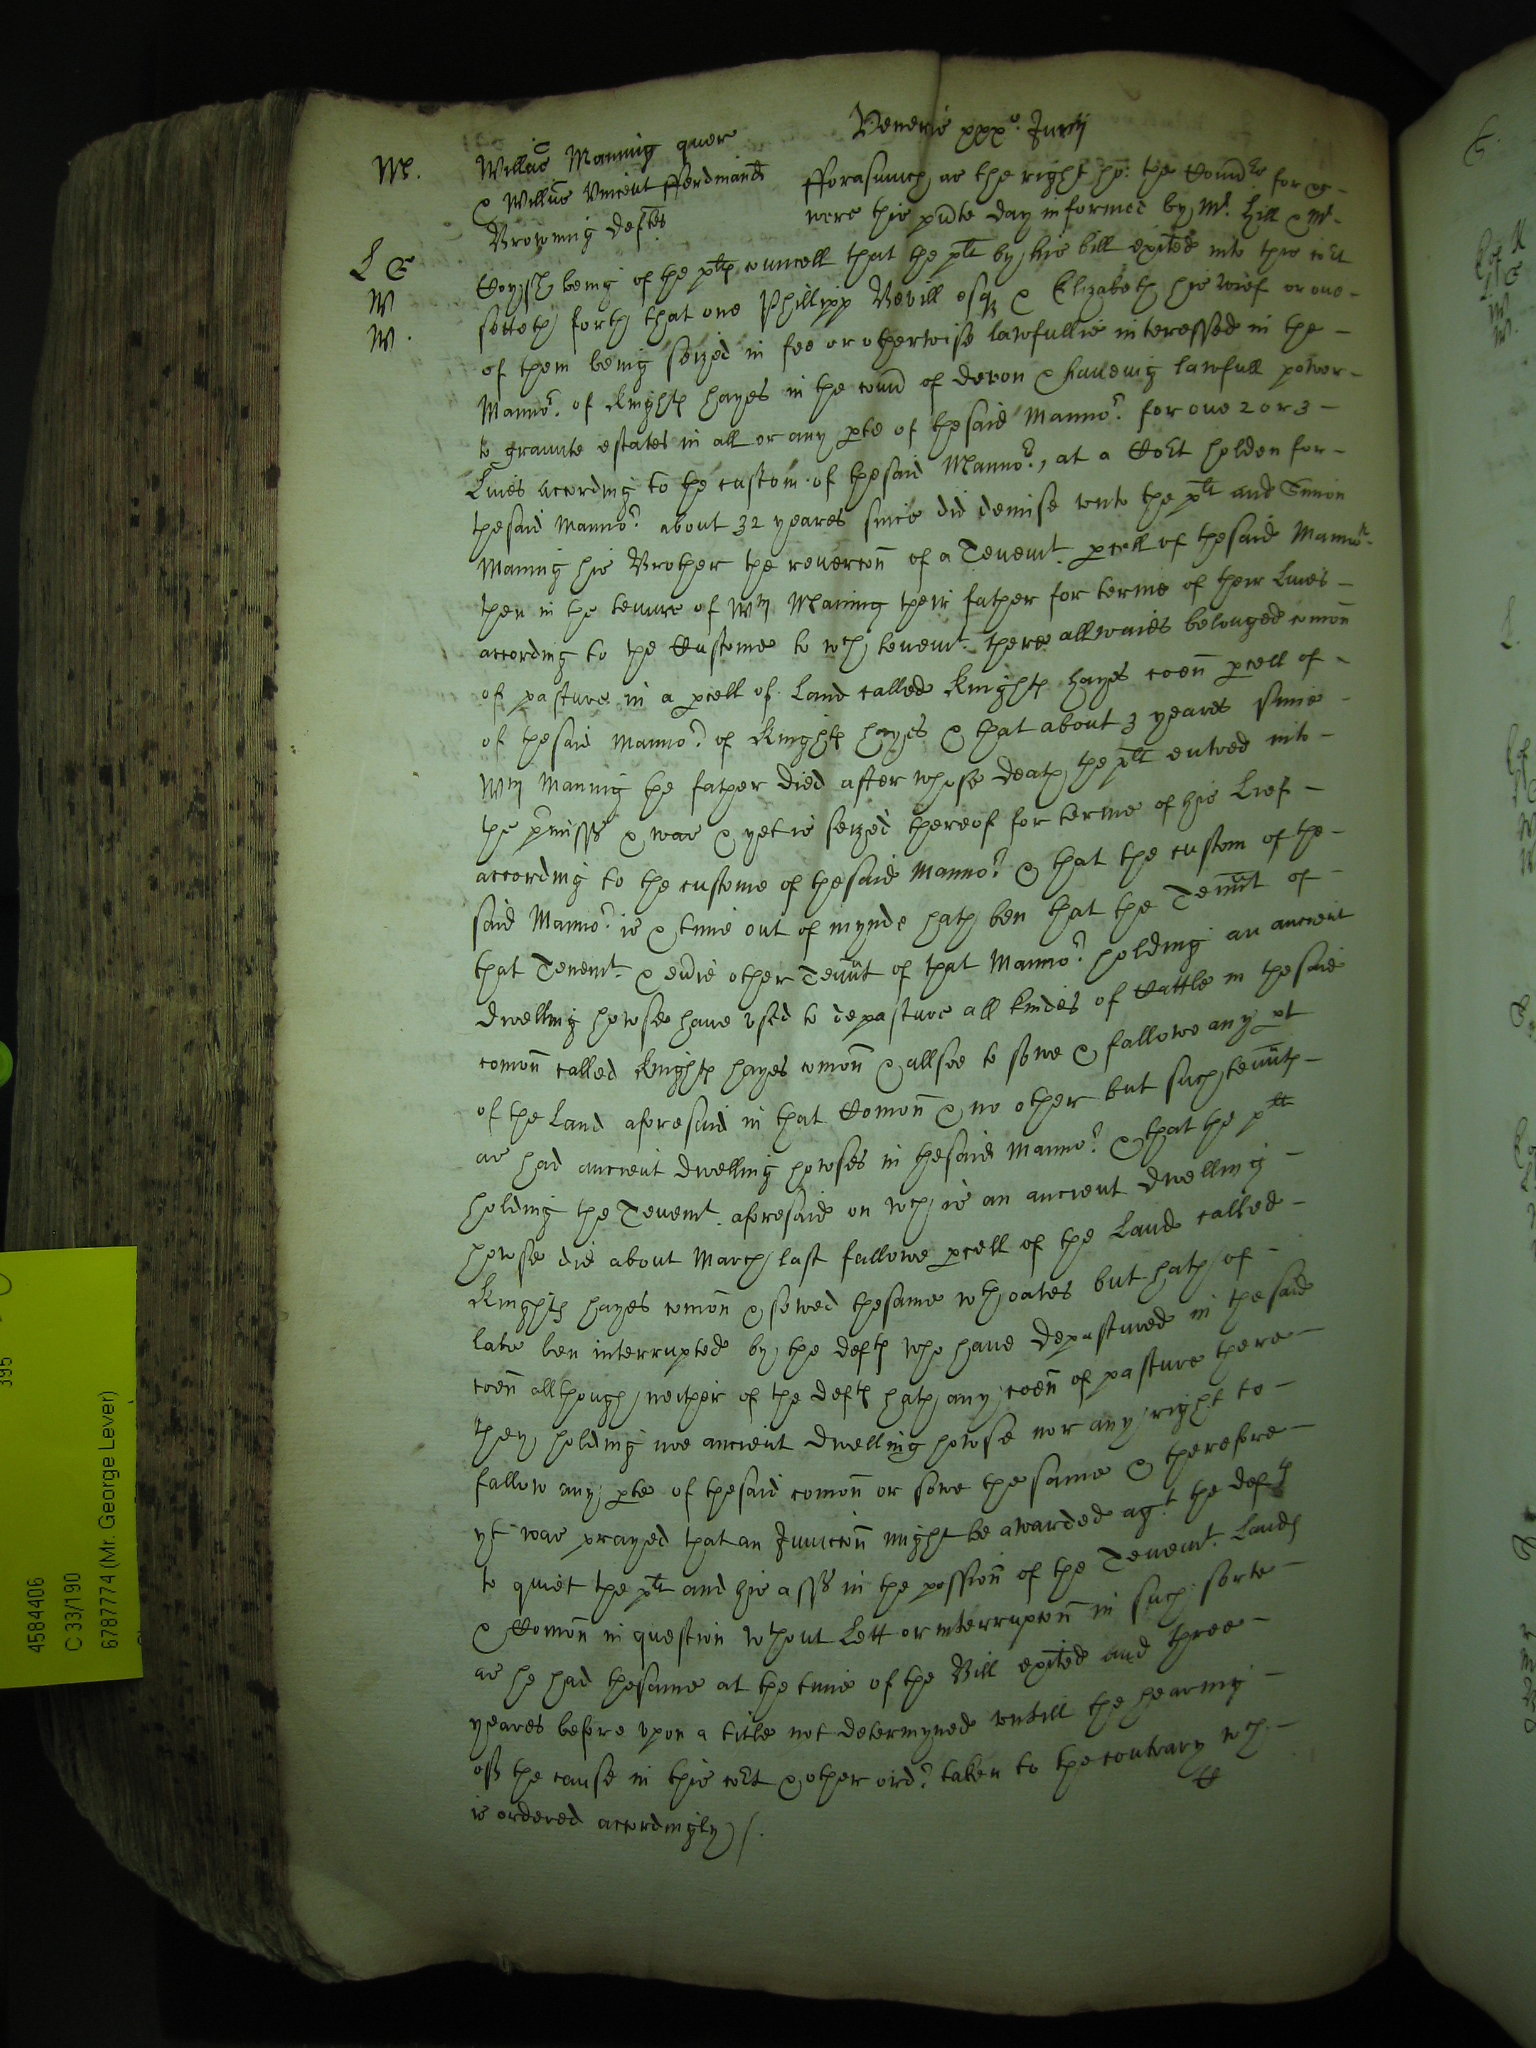 Veneris xxx.o Junij
M. Willus Manning quer
& Willus Vincent Fferdinand
Browning defts
fforasmuch as the right ho: the
were this pnte day informed by Mr. Hill & Mr.
L S
W
W.
being of the pltes councell that the plt by his bill exited into this cort
setteth forth that one Phillipp Bevill esq & Elizabeth his wief or one
of them being seized in fee or otherwise lawfullie interessed in the
Manno.r of Knights Hayes in the coun of Devon & haveing lawfull power
to graunte estates in all or any pte of thesaid Manno.r for one 2 or 3
Lives according to the custom of thesaid Manno.r, at a Cort holden for
thesaid Manno.r about 32 yeares since did demise unto the plt and Simon
Maning his Brother the revercon of a Tenemt. pcell of thesaid Manno.r
then in the tenure of Wm Maning their father for terme of their Lives
according to the Custome to wch tenemt. there allwaies belonged comon
of pasture in a pcell of Land called Knights Hayes coen pcell of
of thesaid Manno.r of Knights hayes & that about 3 yeares since
Wm Maning the father died after whose death the plt entred into
the pmisss & was & yet is seized thereof for terme of his Lief
according to the custome of thesaid Manno.r & that the custom of the
said Manno.r is & time out of mynde hath ben that the Tennt of
that Tenemt. & evie other Tennt of that Manno.r holding an ancient
dwelling howse have used to depasture all kindes of Cattle in thesaid
comon called Knights hayes comon & allsoe to sowe & fallowe any pt
of the Land aforesaid in that Comon & no other but such tennts
as had ancient dwelling howses in thesaid Manno.r & that the plt
holding the Tenemt. aforesaid on wch is an ancient dwelling
howse did about March last fallowe pcell of the Land called
Knights hayes comon & sowed thesame wth oates but hath of
late ben interrupted by the defts who have depastured in thesaid
coen allthough neither of the defts hath any coen of pasture there
they holding noe ancient dwelling howse nor any right to
fallow any pte of thesaid comon or sowe the same & therefore
yt was prayed that an Iniuccon might be awarded agt. the defts
to quiet the plt and his asss in the possion of the Tenemt. Lands
& Comon in question wthout Lett or interrupcon in such sorte
as he had thesame at the time of the Bill exited and three
yeares before upon a title not determyned untill the hearing
of the cause in this cort & other ord.r taken to the contrary wch
is ordered accordingly /.
395
4584406
C 33/190
6787774 (Mr. George Lever)